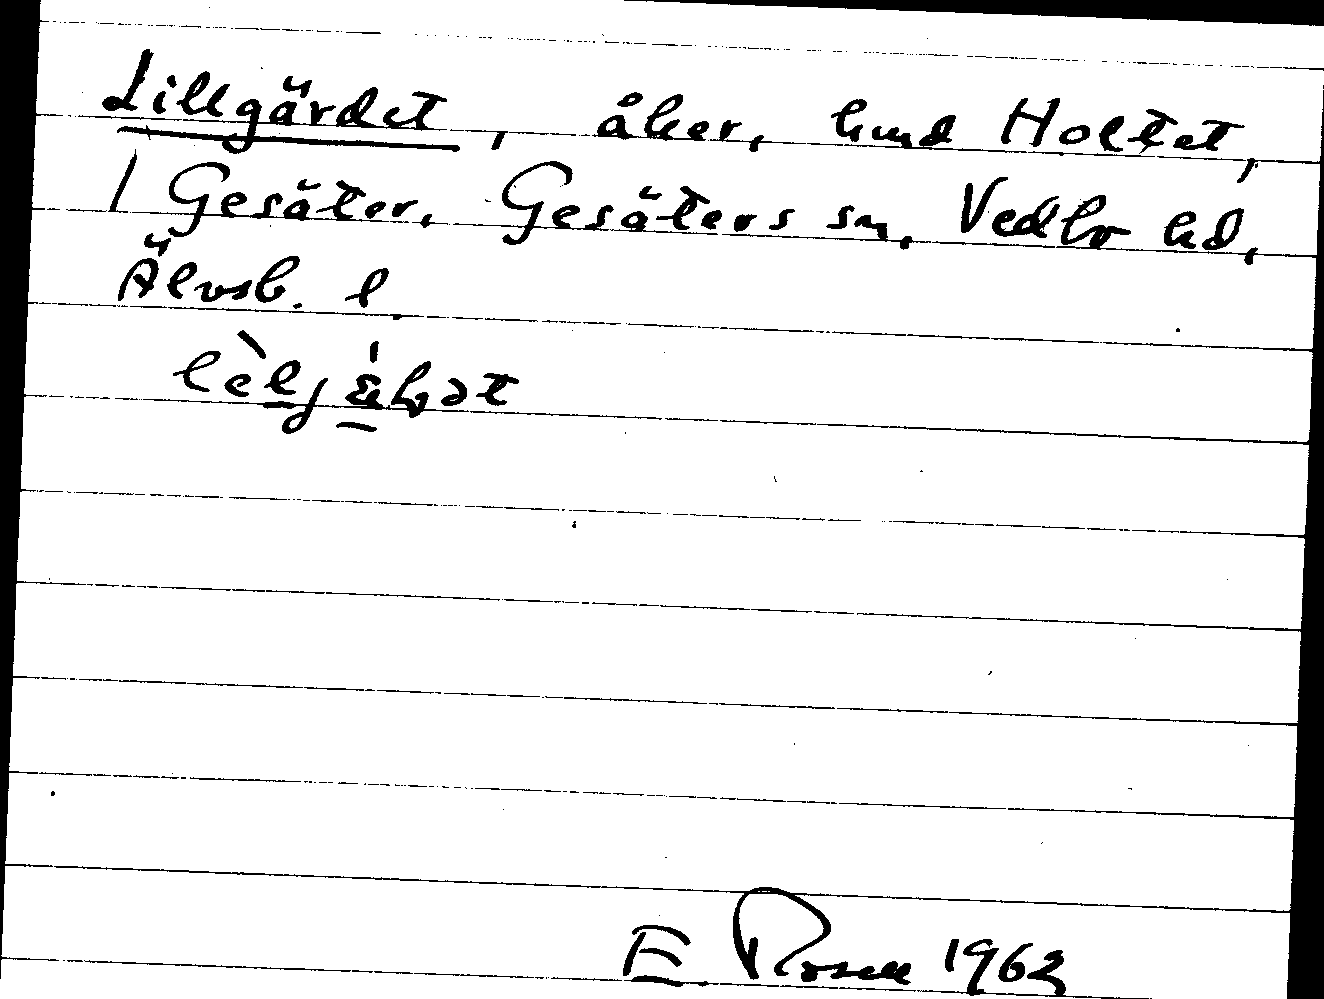 Lillgärdet, åker, hmd Holtet,
1 Gesäter, Gesäters sn, Vedbo hd,
Älvsb. l.
E. Rosell 1963